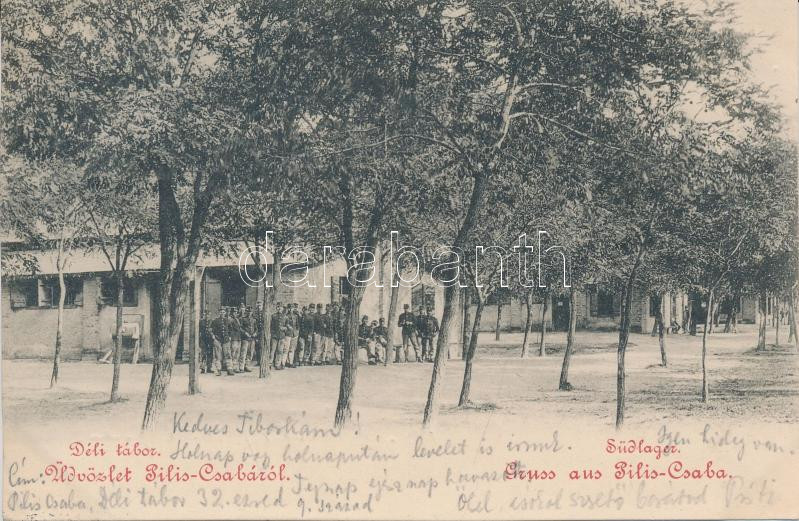 darabanth
Déli tábor.
Südlager.
Üdvözlet Pilis-Csabáról.
Gruss aus Pilis-Csaba.
Kedves Tiborkám!
Holnap vagy holnapután levelet is írunk. Igen hideg van.
Cím: Tegnap éjjel nap havazott
Pilis Csaba, Déli tábor 32. ezred
9. század
Ölel, csókol szerető barátod